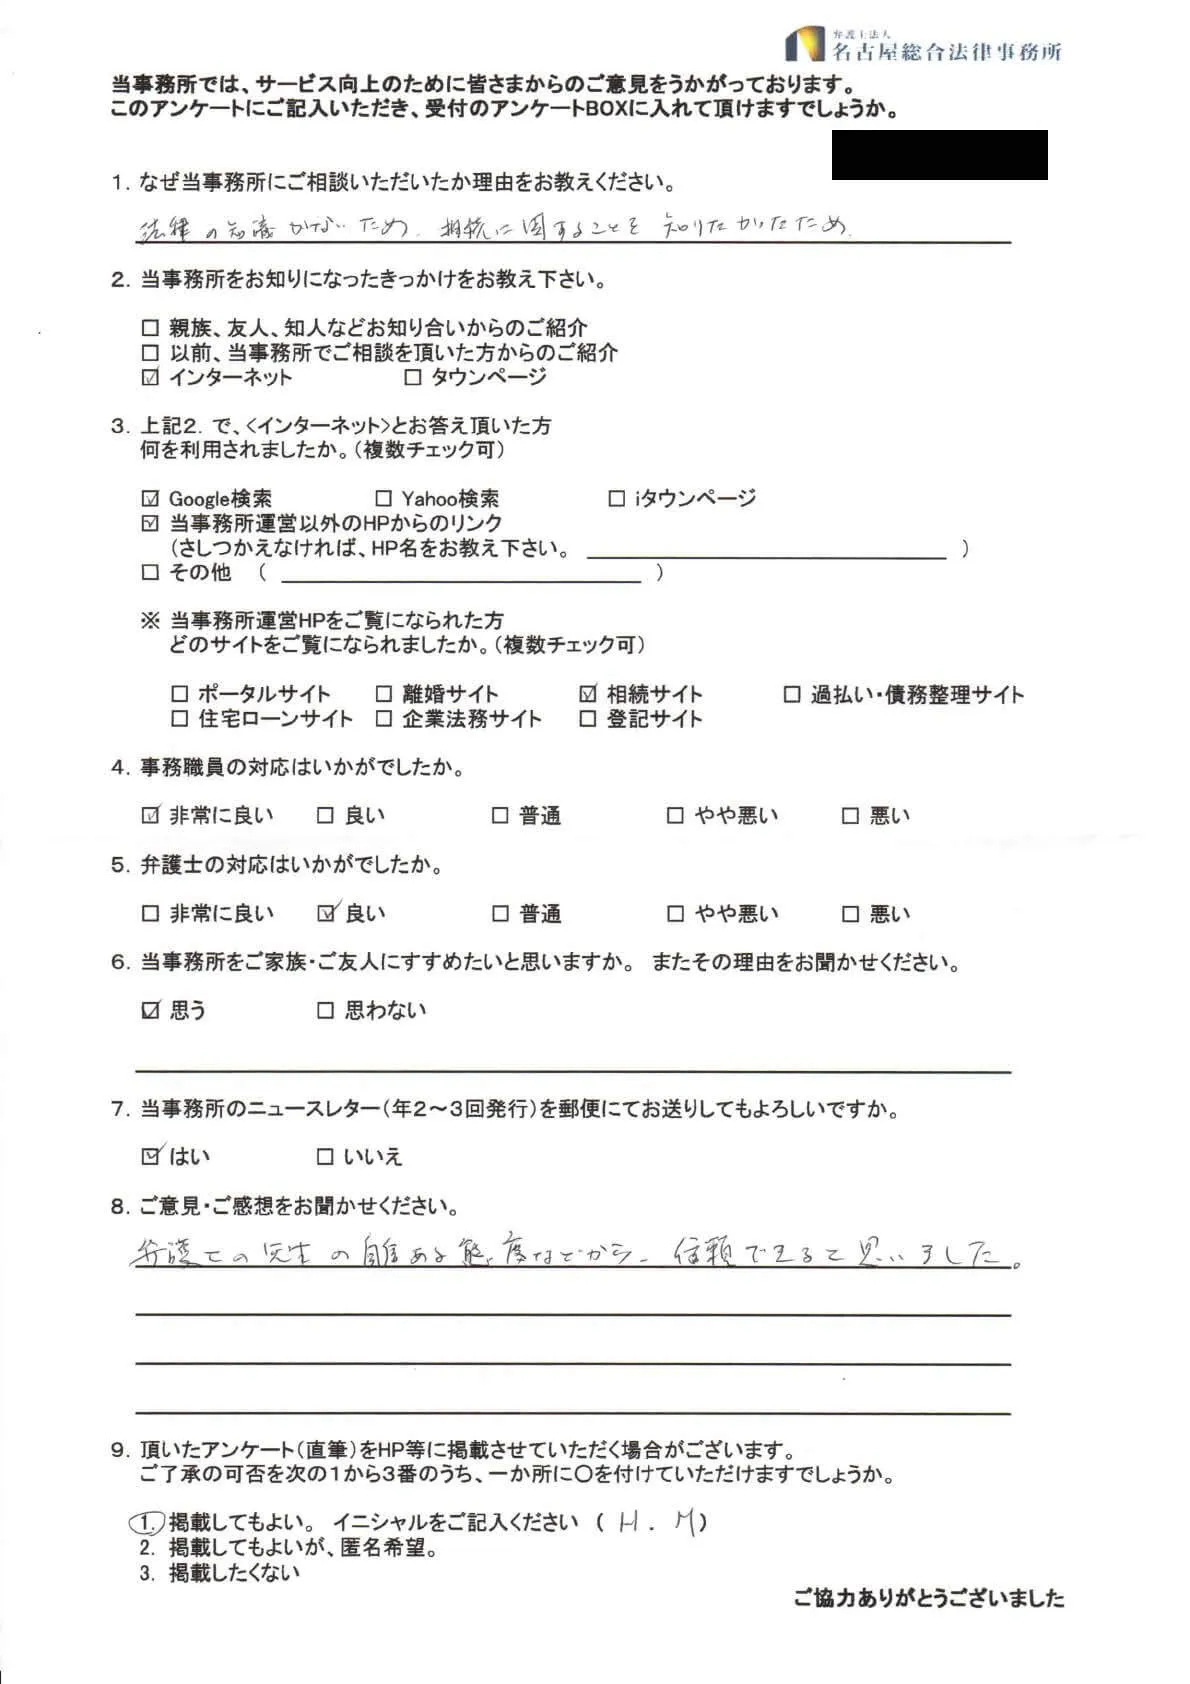 弁護士法人
名古屋総合法律事務所
当事務所では、サービス向上のために皆さまからのご意見をうかがっております。
このアンケートにご記入いただき、受付のアンケートBOXに入れて頂けますでしょうか。
1. なぜ当事務所にご相談いただいたか理由をお教えください。
法律の知識がないため、相続に関することを知りたかったため.
2. 当事務所をお知りになったきっかけをお教え下さい。
□ 親族、友人、知人などお知り合いからのご紹介
□ 以前、当事務所でご相談を頂いた方からのご紹介
☑ インターネット □ タウンページ
3. 上記2. で、<インターネット>とお答え頂いた方
何を利用されましたか。(複数チェック可)
☑ Google検索 □ Yahoo検索 □ iタウンページ
☑ 当事務所運営以外のHPからのリンク
(さしつかえなければ、HP名をお教え下さい。 )
□ その他 ( )
※ 当事務所運営HPをご覧になられた方
どのサイトをご覧になられましたか。(複数チェック可)
□ ポータルサイト □ 離婚サイト ☑ 相続サイト □ 過払い・債務整理サイト
□ 住宅ローンサイト □ 企業法務サイト □ 登記サイト
4. 事務職員の対応はいかがでしたか。
☑ 非常に良い □ 良い □ 普通 □ やや悪い □ 悪い
5. 弁護士の対応はいかがでしたか。
□ 非常に良い ☑ 良い □ 普通 □ やや悪い □ 悪い
6. 当事務所をご家族・ご友人にすすめたいと思いますか。 またその理由をお聞かせください。
☑ 思う □ 思わない
7. 当事務所のニュースレター(年2~3回発行)を郵便にてお送りしてもよろしいですか。
☑ はい □ いいえ
8. ご意見・ご感想をお聞かせください。
弁護士の先生の自信ある態度などから、信頼できると思いました。
9. 頂いたアンケート(直筆)をHP等に掲載させていただく場合がございます。
ご了承の可否を次の1から3番のうち、一か所に〇を付けていただけますでしょうか。
1. 掲載してもよい。 イニシャルをご記入ください ( H . M )
2. 掲載してもよいが、匿名希望。
3. 掲載したくない
ご協力ありがとうございました